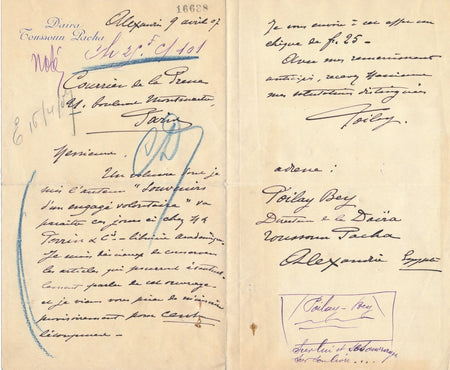 16638
Daïra
Toussoun Pacha
Alexandrie 9 avril 07
Noté
Ch 25 F c/ 101
Courrier de la Presse
21, boulevard Montmartre
Paris
E 15/4/07
Messieurs,
Un volume que je
suis l'auteur "Souvenirs
d'un engagé volontaire" va
paraître ces jours ci chez MM
Perrin & Cie – librairie académique.
Je suis désireux de conserver
les articles qui pourront éventuel-
lement parler de cet ouvrage
et je viens vous prier de m'inscrire
provisoirement pour cent
découpures –
Je vous envoie à cet effet un
chèque de fr. 25 –
Avec mes remerciements
anticipés, recevez Messieurs
mes salutations distinguées
Poilay
adresse :
Poilay Bey
Directeur de la Daïra
Toussoun Pacha
Alexandrie Egypte
Poilay-Bey
sur lui et son ouvrage